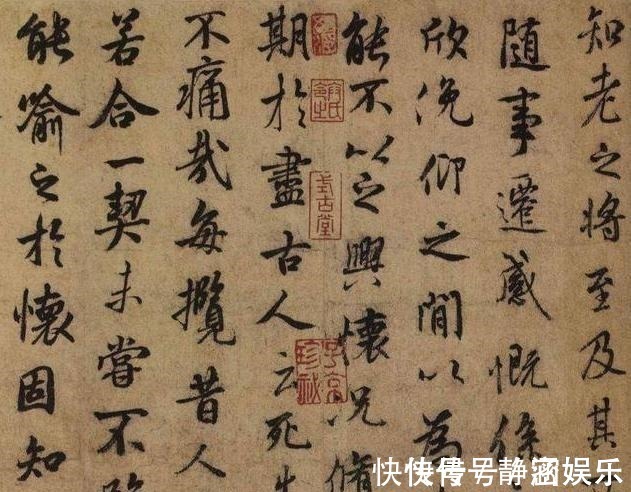 知老之将至及其
随事遷感慨係
欣俛仰之閒以為
能不以之興懷况脩
期於盡古人云死生
不痛哉每攬昔人
若合一契未嘗不臨
能喻之於懷固知
式古堂
子京珍秘
快传号/静涵娱乐